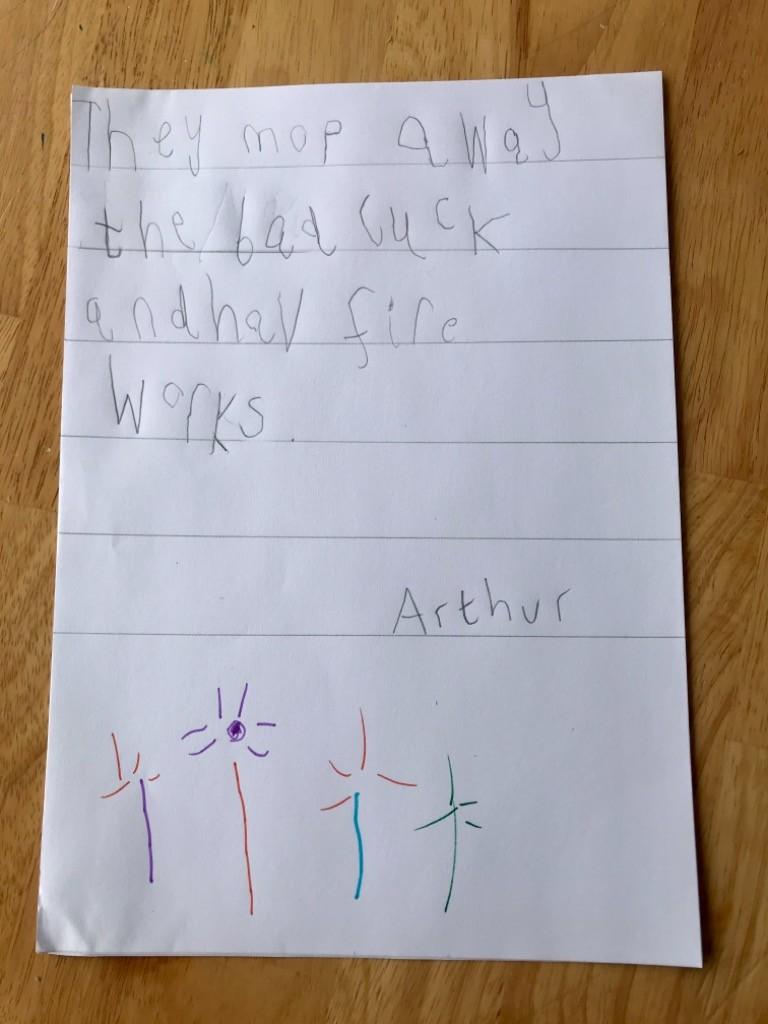 They mop away
the bad luck
and hav fire
works.
Arthur